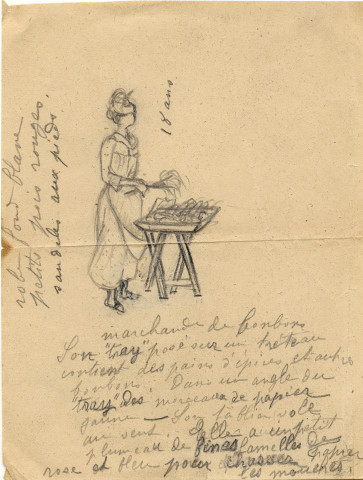 robe fond blanc
petits pois rouges.
sandales aux pieds
18 ans
marchande de bonbons
Son "tray" posé sur un tréteau
contient des pains d'épices et autres
bonbons. Dans un angle du
"tray" des morceaux de papier
jaune — Son
au vent. Elle a un petit
plumeau de fines lamelles de papier
rose et bleu pour chasser
les mouches.